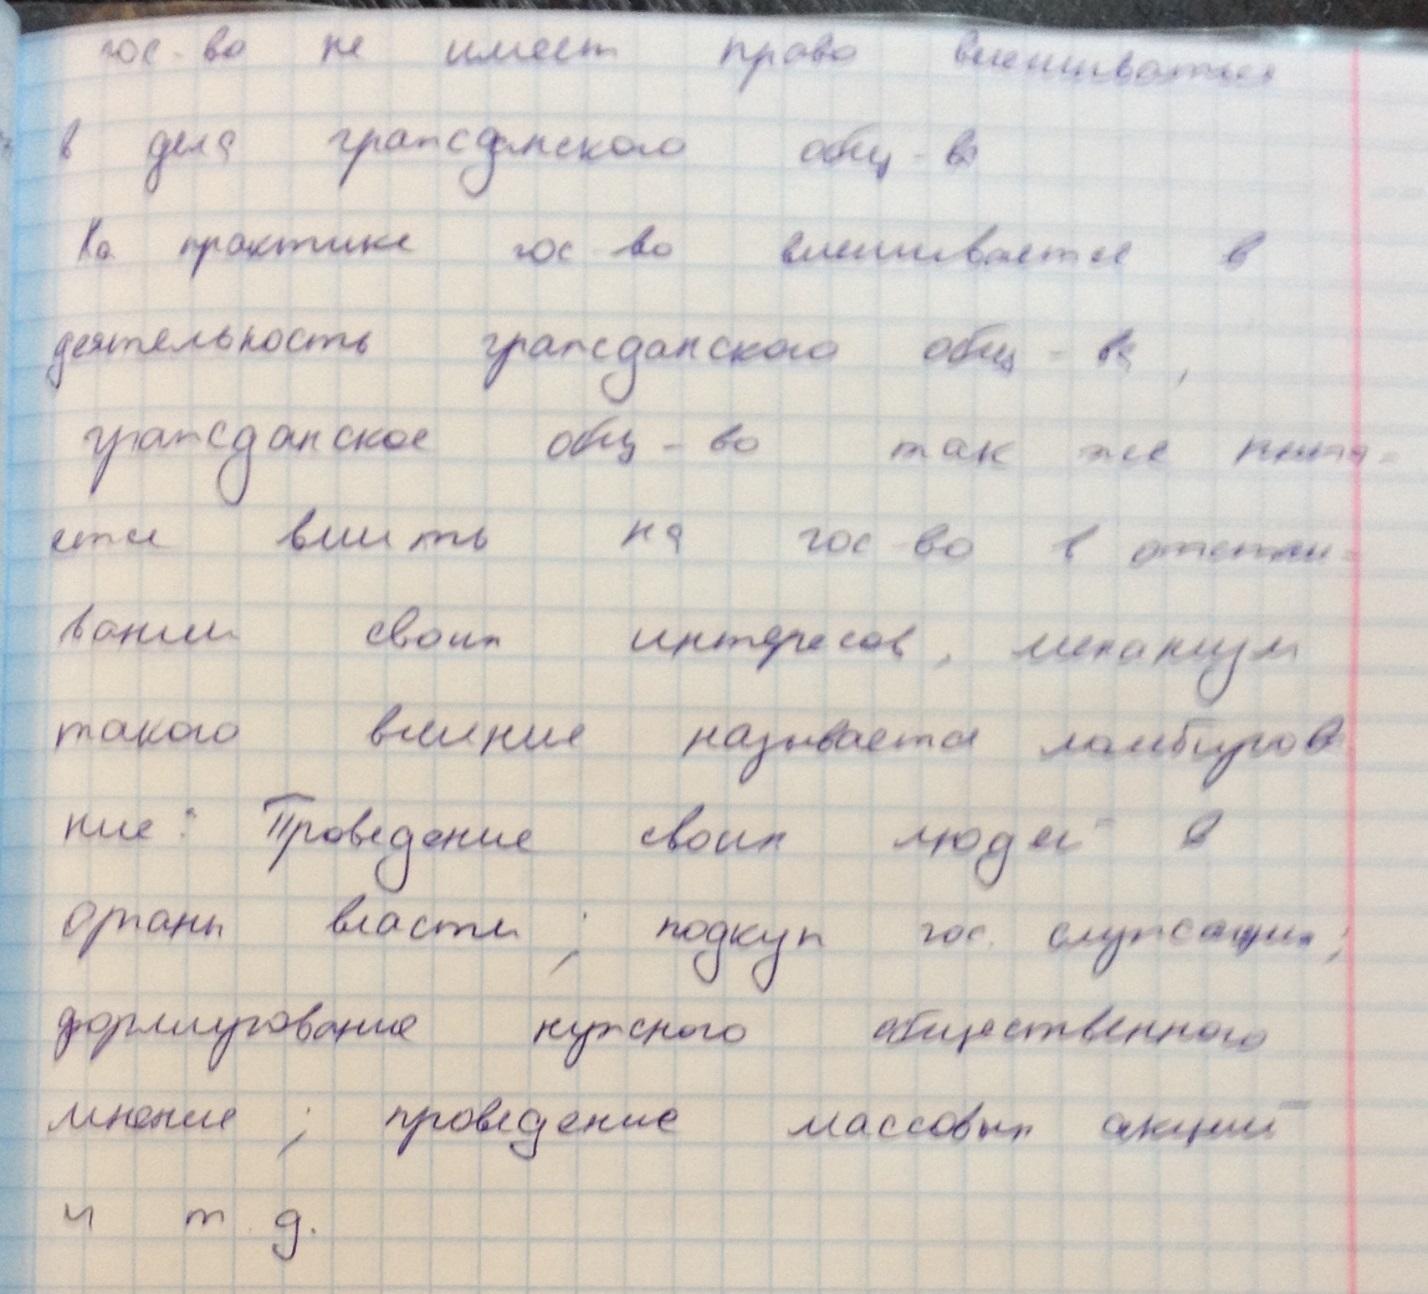 гос-во не имеет право вмешиваться
в дела гражданского общ-ва
На практике гос-во вмешивается в
деятельность гражданского общ-ва,
гражданское общ-во так же пыта-
ется влиять на гос-во в отстаи-
вании своих интересов, механизм
такого влиние называется ломбирова
ние: Проведение своих людей в
органы власти; подкуп гос. служащих;
формирование нужного общественного
мнение; проведение массовых акций
и т д.